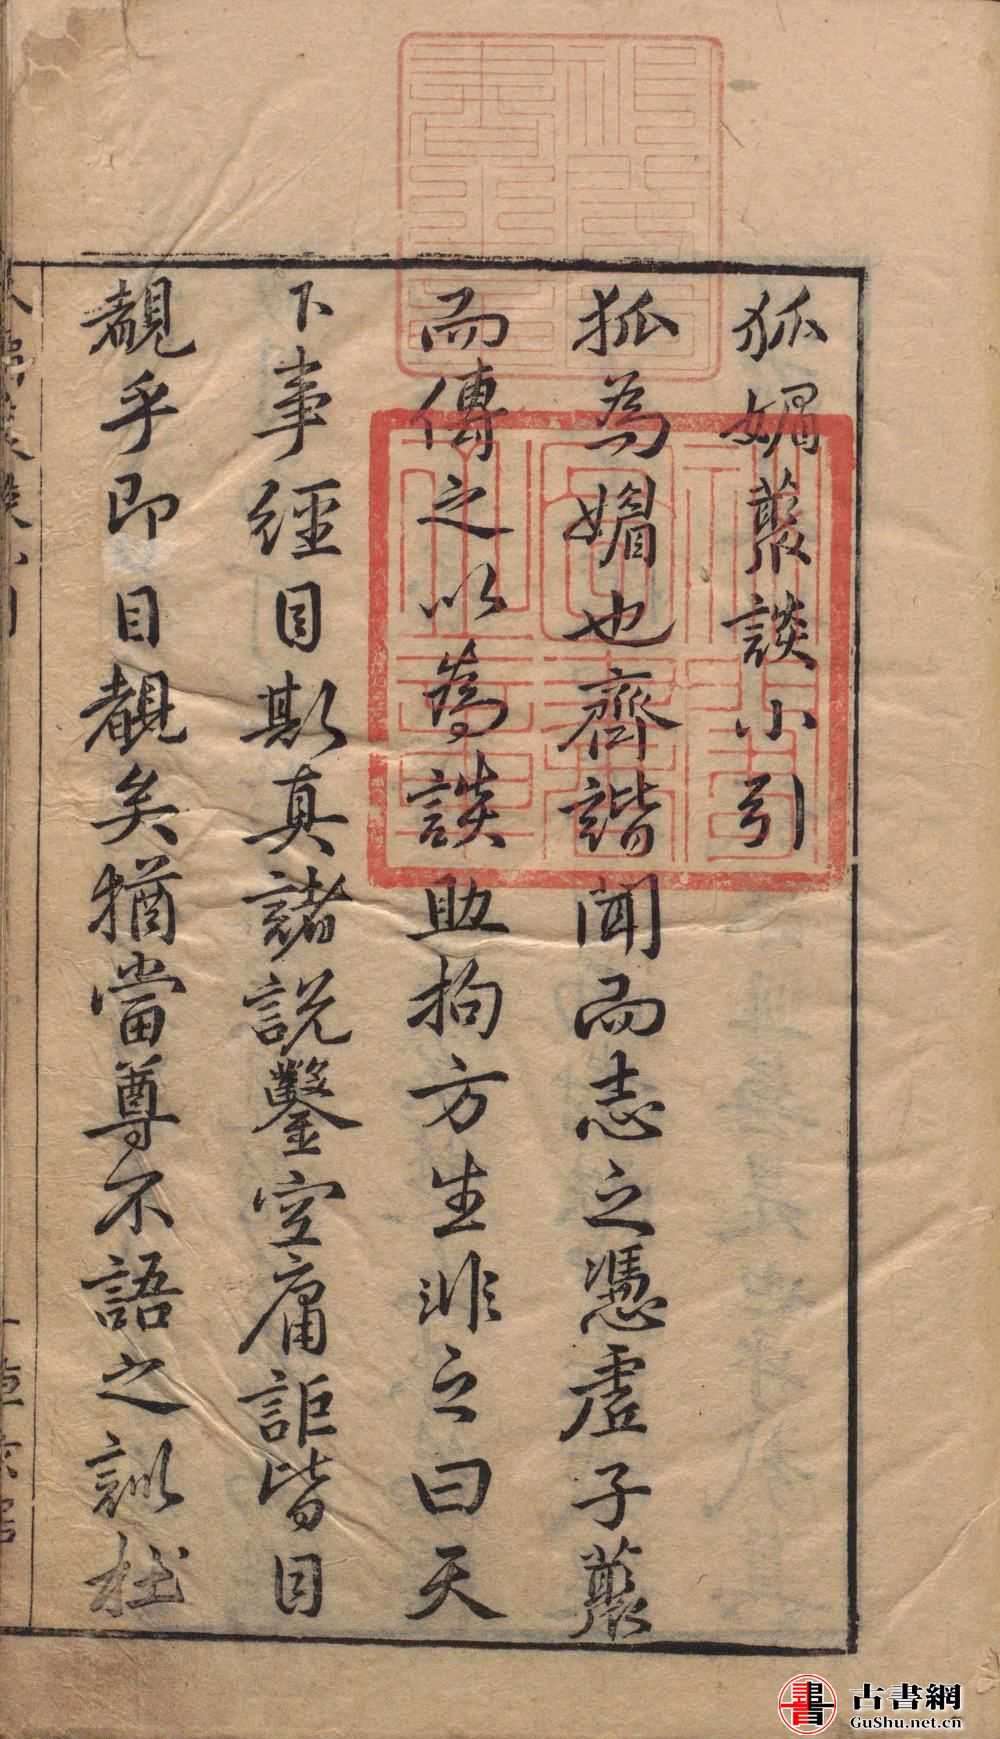 狐媚叢談小引
狐為媚也齊諧聞而志之憑虛子叢
而傳之以為談助拘方生非之曰天
下事經目斯真諸說鑿空庸詎皆目
覩乎即目覩矣猶當尊不語之訓杜
古書網
GuShu.net.cn